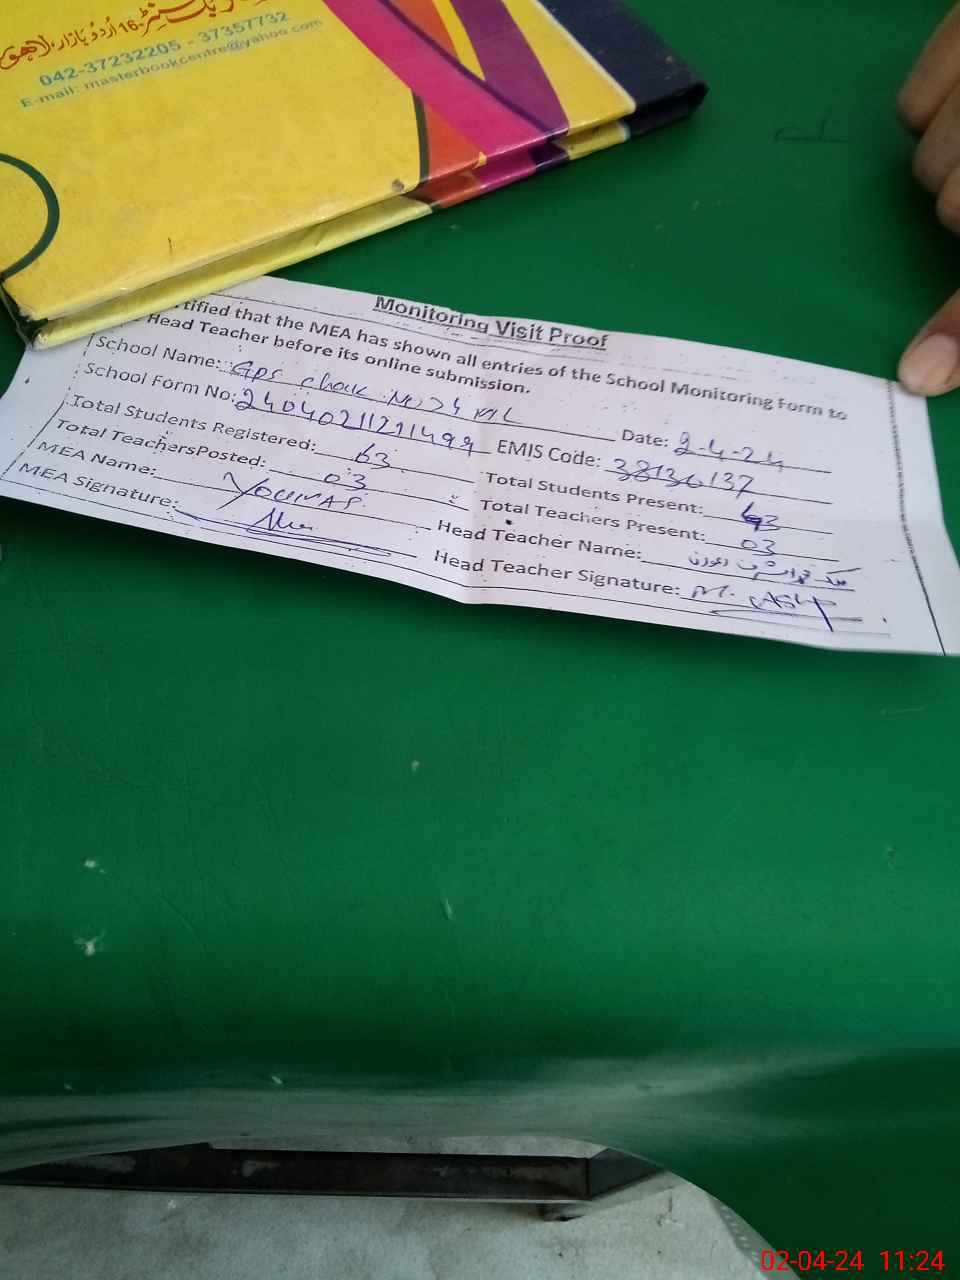 16 اُردو بازار، لاہور
042-37232205 - 37357732
E-mail: masterbookcentre@yahoo.com
Monitoring Visit Proof
rtified that the MEA has shown all entries of the School Monitoring Form to
Head Teacher before its online submission.
School Name: GPS chak No 24 ML Date: 2-4-24
School Form No: EMIS Code: 38136137
Total Students Registered: 63 Total Students Present: 63
Total TeachersPosted: 03 Total Teachers Present: 03
MEA Name: Younas Head Teacher Name:
MEA Signature: Head Teacher Signature:
02-04-24 11:24